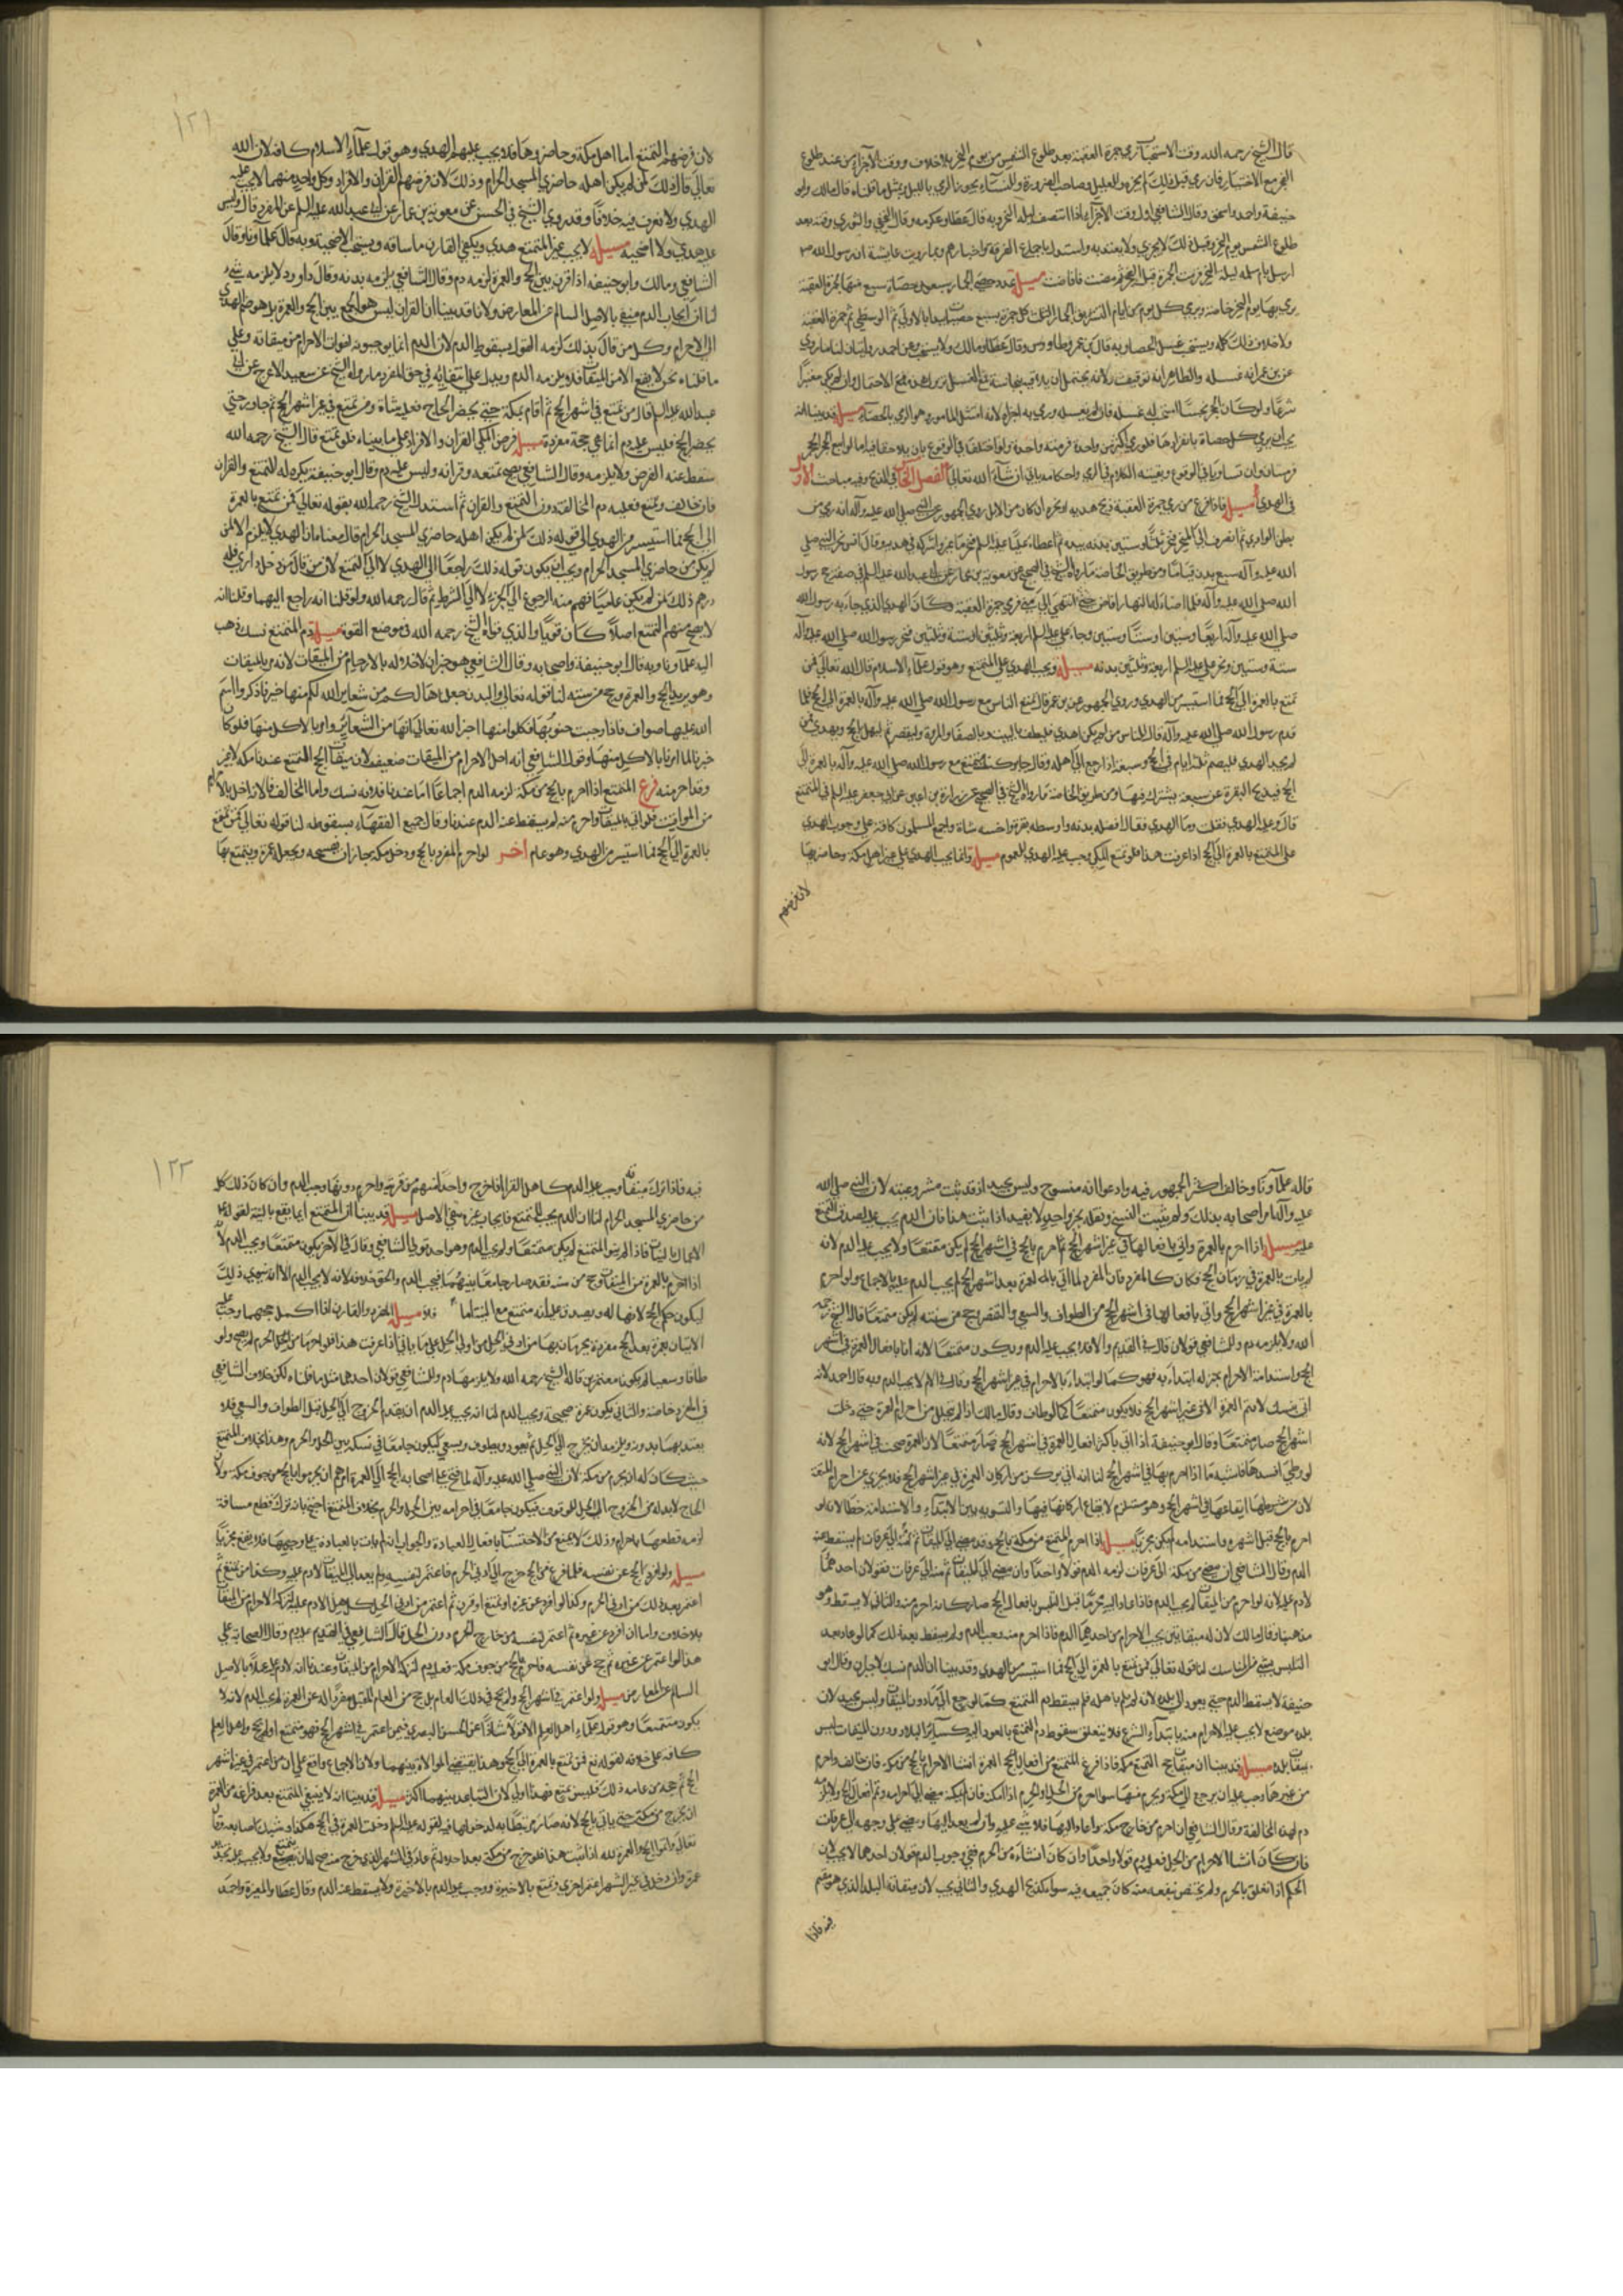 قال الشيخ رحمه الله وقت الاستحباب لرمي جمرة العقبة بعد طلوع الشمس من يوم النحر بلا خلاف ووقت الاجزاء من عند طلوع
الفجر مع الاختيار فان رمى قبل ذلك لم يجزه وللعليل وصاحب الضرورة والنساء يجوز الرمي بالليل وبمثل ما قلناه قال مالك وابو
حنيفة واحمد واسحق وقال الشافعي اول وقت الاجزاء اذا انتصفت ليلة النحر وبه قال عطا وعكرمه وقال النخعي والثوري وقته بعد
طلوع الشمس يوم النحر وقبل ذلك لا يجزي ولا يعتد به واستدل باجماع الفرقة واخبارهم وبما روت عايشة ان رسول الله ص
ارسل بام سلمه ليلة النحر فرمت الجمرة قبل الفجر ثم مضت فافاضت مسيلة عدد حصى الجمار سبعون حصاة سبع منها لجمرة العقبة
يرمي بها يوم النحر خاصة ويرمي كل يوم من ايام التشريق الجمار الثلث كل جمرة بسبع حصيات يبدا بالاولى ثم الوسطى ثم جمرة العقبة
ولا خلاف في ذلك كله ويستحب غسل الحصا وبه قال ابن عمر وطاووس وقال عطا ومالك ولا يستحب وعن احمد روايتان لنا ما روي
عن ابن عمر انه غسله والظاهر انه توقيف ولانه يحتمل ان يلاقيه نجاسة فمع الغسل يزول هذه مع الاحتمال وان لم يكن معتبرا
شرعا ولو كان الحجر نجسا استحب له غسله فان لم يغسله ورمى به اجزاه لانه امتثل المامور به وهو الرمي بالحصاة مسيلة قد بينا انه
يجب ان يرمي كل حصاة بانفرادها فلو رمى اكثر من واحدة فرميه واحدة ولو اختلفا في الوقوع بان يلاحقا فيه اما لو اتبع الحجر الحجر
فرميتان وان تساويا في الوقوع وبقية الكلام في الرمي واحكامه ياتي ان شاء الله تعالى الفصل الثاني في الذبح وفيه مباحث الاول
في الهدي مسيلة فاذا فرغ من رمي جمرة العقبة ذبح هديه او نحره ان كان من الابل روى الجمهور عن النبي صلى الله عليه وآله انه رمى من
بطن الوادي ثم انصرف الى المنحر فنحر ثلثا وستين بدنه بيده ثم اعطى عليا عليه السلم فنحر ما غبر واشركه في هديه وقال انس نحر النبي صلى
الله عليه وآله سبع بدن قياما ومن طريق الخاصة ما رواه الشيخ في الصحيح عن معوية بن عمار عن ابي عبد الله عليه السلم في صفة حج رسول
الله صلى الله عليه وآله فلما اضاء له النهار افاض حتى انتهى الى منى فرمى جمرة العقبة وكان الهدي الذي جاء به رسول الله
صلى الله عليه وآله اربعا وستين او ستا وستين وجاء علي عليه السلم اربعة وثلثين او ستة وثلثين فنحر رسول الله صلى الله عليه وآله
ستة وستين ونحر علي عليه السلم اربعة وثلثين بدنه مسيلة ويجب الهدي على المتمتع وهو قول علماء الاسلام قال الله تعالى فمن
تمتع بالعمرة الى الحج فما استيسر من الهدي وروى الجمهور عن ابن عمر قال تمتع الناس مع رسول الله صلى الله عليه وآله بالعمرة الى الحج فلما
قدم رسول الله صلى الله عليه وآله قال للناس من لم يكن اهدى فليطف بالبيت وبالصفا والمروة وليقصر ثم ليهل بالحج ويهدي فمن
لم يجد الهدي فليصم ثلثة ايام في الحج وسبعة اذا رجع الى اهله وقال جابر كنا نتمتع مع رسول الله صلى الله عليه وآله بالعمرة الى
الحج فيذبح البقرة عن سبعة يشترك فيها ومن طريق الخاصة ما رواه الشيخ في الصحيح عن زرارة بن اعين عن ابي جعفر عليه السلم في المتمتع
قال وعليه الهدي فقلت وما الهدي فقال افضله بدنه واوسطه بقرة واخسه شاة واجمع المسلمون كافة على وجوب الهدي
على المتمتع بالعمرة الى الحج اذا عرفت هذا فلو تمتع المكي وجب عليه الهدي للعموم مسيلة وانما يجب الهدي على غير اهل مكة وحاضريها
لان فرضهم
١٢١
لان فرضهم التمتع اما اهل مكة وحاضروها فلا يجب عليهم الهدي وهو قول علماء الاسلام كافة لان الله
تعالى قال ذلك لمن لم يكن اهله حاضري المسجد الحرام وذلك لان فرضهم القران والافراد وكل واحد منهما لا يجب عليه
الهدي ولا نعرف فيه خلافا وقد روى الشيخ في الحسن عن معوية بن عمار عن ابي عبد الله عليه السلم عن المفرد قال ليس
عليه هدي ولا اضحيه مسيلة لا يجب غير المتمتع هدي ويكفي القارن ما ساقه ويستحب الاضحية وبه قال علماونا وقال
الشافعي ومالك وابو حنيفه اذا قرن بين الحج والعمرة لزمه دم وقال الشافعي يلزمه بدنه وقال داود لا يلزمه شيء
لنا ان ايجاب الدم منفي بالاصل السالم عن المعارض ولانا قد بينا ان القران ليس هو الجمع بين الحج والعمرة بل هو ضم الهدي
الى الاحرام وكل من قال بذلك لزمه القول بسقوط الدم لان الدم انما يوجبونه لفوات الاحرام من ميقاته وعلى
ما قلناه نحن لا يقع الا من الميقات فلا يلزمه الدم ويدل على انتفائه في حق المفرد ما رواه الشيخ عن سعيد الاعرج عن ابي
عبد الله عليه السلم قال من تمتع في اشهر الحج ثم اقام بمكة حتى يحضر الحاج فعليه شاة ومن تمتع في غير اشهر الحج ثم جاور حتى
يحضر الحج فليس عليه دم انما هي حجة مفردة مسيلة فرض المكي القران والافراد على ما بيناه فلو تمتع قال الشيخ رحمه الله
سقط عنه الفرض ولا يلزمه وقال الشافعي يصح تمتعه وقرانه وليس عليه دم وقال ابو حنيفة يكره له التمتع والقران
فان خالف وتمتع فعليه دم المخالفة دون التمتع والقران ثم استدل الشيخ رحمه الله بقوله تعالى فمن تمتع بالعمرة
الى الحج فما استيسر من الهدي الى قوله ذلك لمن لم يكن اهله حاضري المسجد الحرام قال معناه ان الهدي لا يلزم الا لمن
لم يكن من حاضري المسجد الحرام ويجب ان يكون قوله ذلك راجعا الى الهدي لا الى التمتع لان من قال من دخل داري فله
درهم ذلك لمن لم يكن عاصيا فهم منه الرجوع الى الجزاء لا الى الشرط ثم قال رحمه الله ولو قلنا انه راجع اليهما وقلنا انه
لا يصح منهم التمتع اصلا كان قويا والذي قواه الشيخ رحمه الله في موضع القوة مسيلة دم المتمتع نسك ذهب
اليه علماونا وبه قال ابو حنيفة واصحابه وقال الشافعي هو جبران لاخلاله بالاحرام من الميقات لانه مر بالميقات
وهو يريد الحج والعمرة وحج من سنته لنا قوله تعالى والبدن جعلناها لكم من شعاير الله لكم فيها خير فاذكروا اسم
الله عليها صواف فاذا وجبت جنوبها فكلوا منها اخبر الله تعالى انها من الشعائر وامر بالاكل منها فلو كان
جبرانا لما امرنا بالاكل منها وقول الشافعي انه اخل الاحرام من الميقات ضعيف لان ميقات الحج للمتمتع عندنا مكه لا غير
وقد احرم منه فرع المتمتع اذا احرم بالحج من مكة لزمه الدم اجماعا اما عندنا فلانه نسك واما المخالف فلانه اخل بالاحرام
من المواقيت فلو اتى بالميقات واحرم منه لم يسقط عنه الدم عندنا وقال جميع الفقهاء بسقوطه لنا قوله تعالى فمن تمتع
بالعمرة الى الحج فما استيسر من الهدي وهو عام اخر لو احرم المفرد بالحج ودخل مكة جاز ان يفسخه ويجعله عمرة ويتمتع بها
قاله علماونا وخالف اكثر الجمهور فيه وادعوا انه منسوخ وليس بجيد اذ قد ثبت مشروعيته لان النبي صلى الله
عليه وآله امر اصحابه بذلك ولم يثبت النسخ ونقله بخبر واحد لا يفيد اذا ثبت هذا فان الدم يجب عليه لصدق التمتع
عليه مسيلة اذا احرم بالعمرة واتى بافعالها في غير اشهر الحج ثم احرم بالحج في اشهر الحج لم يكن متمتعا ولا يجب عليه الدم لانه
لم يات بالعمرة في زمان الحج فكان كالمفرد فان المفرد لما اتى بالعمرة بعد اشهر الحج لم يجب الدم عليه بالاجماع ولو احرم
بالعمرة في غير اشهر الحج واتى بافعالها في اشهر الحج من الطواف والسعي والتقصير وحج من سنته لم يكن متمتعا قاله الشيخ رحمه
الله ولا يلزمه دم وللشافعي قولان قال في القديم والاملاء يجب عليه الدم ويكون متمتعا لانه اتى بافعال العمرة في اشهر
الحج واستدامة الاحرام بمنزلة ابتدائه فهو كما لو ابتدا بالاحرام في اشهر الحج وقال في الام لا يجب الدم وبه قال احمد لانه
اتى بنسك لا تتم العمرة الا به في غير اشهر الحج فلا يكون متمتعا كما لو طاف وقال مالك اذا لم يتحلل من احرام العمرة حتى دخلت
اشهر الحج صار متمتعا وقال ابو حنيفة اذا اتى باكثر افعال العمرة في اشهر الحج صار متمتعا لان العمرة صحت في اشهر الحج لانه
لو وطى افسدها فاشبه ما اذا احرم بها في اشهر الحج لنا انه اتى بركن من اركان العمرة في غير اشهر الحج فلا يجزي عن احرام المتعة
لان من شرطها ايقاعها في اشهر الحج وهو مستلزم لايقاع اركانها فيها والتسوية بين الابتداء والاستدامة خطا لانه لو
احرم بالحج قبل اشهره واستدامه لم يكن مجزيا مسيلة اذا احرم المتمتع من مكة بالحج ومضى الى الميقات ثم منه الى عرفات لم يسقط عنه
الدم وقال الشافعي ان مضى من مكة الى عرفات لزمه الدم قولا واحدا وان مضى الى الميقات ثم منه الى عرفات فقولان احدهما
لا دم عليه لانه لو احرم من الميقات لم يجب الدم فاذا عاد اليه محرما قبل التلبس بافعال الحج صار كانه احرم منه والثاني لا يسقط وهو
مذهبنا وقال مالك لان له ميقاتين يجب الاحرام من احدهما الدم فاذا احرم منه وجب الدم ولم يسقط بعد ذلك كما لو عاد بعد
التلبس بشيء من المناسك لنا قوله تعالى فمن تمتع بالعمرة الى الحج فما استيسر من الهدي وقد بينا ان الدم نسك لا جبران وقال ابو
حنيفة لا يسقط الدم حتى يعود الى بلده لانه لم يلم باهله فلم يسقط دم التمتع كما لو رجع الى ما دون الميقات وليس بجيد لان
بلده موضع لا يجب عليه الاحرام منه بابتداء الشرع فلا يتعلق سقوط دم التمتع بالعود اليه كسائر البلاد ودون الميقات ليس
ميقات بلده مسيلة قد بينا ان ميقات حج التمتع مكة فاذا فرغ المتمتع من افعال العمرة انشا الاحرام بالحج من مكة فان خالف واحرم
من غيرها وجب عليه ان يرجع الى مكة ويحرم منها سواء احرم من الحل او الحرم اذا امكن فان لم يمكنه مضى على احرامه وتم افعال الحج ولا يلزمه
دم لهذه المخالفة وقال الشافعي ان احرم من خارج مكة وعاد اليها فلا شيء عليه وان لم يعد اليها ومضى على وجهه الى عرفات
فان كان انشا الاحرام من الحل فعليه دم قولا واحدا وان كان انشاه من الحرم ففي وجوب الدم قولان احدهما لا يجب لان
الحكم اذا تعلق بالحرم ولم يختص ببقعة منه كان جميعه فيه سواء كذبح الهدي والثاني يجب لان ميقاته البلد الذي هو مقيم
فيه فاذا
١٢٢
فيه فاذا ترك ميقاته وجب عليه الدم كاهل القرى اذا خرج واحد منهم من قريته واحرم دونها وجب الدم وان كان ذلك كله
من حاضري المسجد الحرام لنا ان الدم يجب للتمتع فايجاب غيره منفي الاصل مسيلة قد بينا ان التمتع انما يقع بالنية لقوله ع انما
الاعمال بالنيات فاذا لم ينو التمتع لم يكن متمتعا ولم يجب الدم وهو احد قولي الشافعي وقال في الآخر يكون متمتعا ويجب الدم لانه
اذا احرم بالعمرة من الميقات وحج من سنته فقد صار جامعا بينهما فيجب الدم والحق خلافه لانه لا يجب الدم الا ان ينوي ذلك
مسيلة المفرد والقارن اذا اكملا حجهما وجب عليهما
الاتيان بعمرة بعد الحج مفردة يحرمان بها من ادنى الحل على ما ياتي اذا عرفت هذا فلو احرما من الحرم لم يصح ولو
طافا وسعيا لم يكونا معتمرين قاله الشيخ رحمه الله ولا يلزمهما دم وللشافعي قولان احدهما مثل ما قلناه لكن خلاف الشافعي
في المفرد خاصة والثاني يكون عمرة صحيحة ويجب الدم لنا انه يجب عليه ان يقدم الخروج الى الحل قبل الطواف والسعي فلا
يعتد بهما بدونه ويلزمه ان يخرج الى الحل ثم يعود ويطوف ويسعى ليكون جامعا في نسكه بين الحل والحرم وهذا بخلاف المتمتع
حيث كان له ان يحرم من مكة لان النبي صلى الله عليه وآله لما فسخ على اصحابه الحج الى العمرة امرهم ان يحرموا بالحج من جوف مكة ولان
الحاج لا بد له من الخروج الى الحل للوقوف فيكون جامعا في احرامه بين الحل والحرم بخلاف المعتمر احتج بانه ترك قطع مسافة
لزمه قطعها باحرام وذلك لا يمنع من الاحتساب بافعال العبادة والجواب انه لم يات بالعبادة على وجهها فلا يقع مجزيا
مسيلة ولو افرد الحج عن نفسه فلما فرغ من الحج خرج الى ادنى الحرم فاعتمر لنفسه ولم يعد الى الميقات لا دم عليه وكذا من تمتع ثم
اعتمر بعد ذلك من ادنى الحرم وكذا لو افرد عن غيره او تمتع او قرن ثم اعتمر من ادنى الحل كل هذا لا دم عليه لتركه الاحرام من الميقات
بلا خلاف واما ان افرد عن غيره ثم اعتمر لنفسه من خارج الحرم دون الحل قال الشافعي في القديم عليه دم وقال اصحابه على
هذا لو اعتمر عن غيره ثم حج عن نفسه فاحرم بالحج من جوف مكة فعليه دم لتركه الاحرام من الميقات وعندنا انه لا دم عليه عملا بالاصل
السالم عن المعارض مسيلة ولو اعتمر في اشهر الحج ولم يحج في ذلك العام بل حج من العام المقبل مفردا له عن العمرة لم يجب الدم لانه لا
يكون متمتعا وهو قول علماء اهل العلم الا قولا شاذا عن الحسن البصري فيمن اعتمر في اشهر الحج فهو متمتع او لم يحج واهل العلم
كافة على خلافه لقوله تع فمن تمتع بالعمرة الى الحج وهذا يقتضي الموالاة بينهما ولان الاجماع واقع على ان من اعتمر في غير اشهر
الحج ثم حج من عامه ذلك فليس بمتمتع فهذا اولى لان التباعد بينهما اكثر مسيلة قد بينا انه لا ينبغي للمتمتع بعد فراغه من العمرة
ان يخرج من مكة حتى ياتي بالحج لانه صار مرتبطا به لدخولها فيه لقوله عليه السلم دخلت العمرة في الحج هكذا وشبك اصابعه وقال
تعالى واتموا الحج والعمرة لله اذا ثبت هذا فلو خرج من مكة بعد احلاله ثم عاد في الشهر الذي خرج منه صح له ان يتمتع ولا يجب عليه تجديد
عمرة وان دخل في غير الشهر اعتمر اخرى وتمتع بالاخيرة ووجب عليه الدم بالاخيرة ولا يسقط عنه الدم وقال عطا والمغيرة واحمد